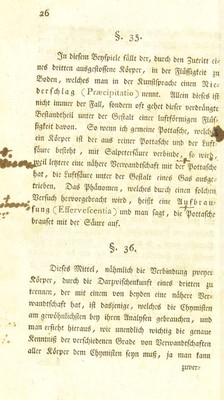 26
§. 35.
In diesem Beyspiele fällt der, durch den Zutritt ei-
nes dritten ausgestoßene Körper, in der Flüßigkeit zu
Boden, welches man in der Kunstsprache einen Nie-
derschlag (Præcipitatio) nennt. Allein dieses ist
nicht immer der Fall, sondern oft gehet dieser verdrängte
Bestandtheil unter der Gestalt einer luftförmigen Flüs-
sigkeit davon. So wenn ich gemeine Pottasche, welch
ein Körper ist der aus reiner Pottasche und der Luft-
säure besteht, mit Salpetersäure verbinde, so wird,
weil letztere eine nähere Verwandtschaft mit der Pottasche
hat, die Luftsäure unter der Gestalt eines Gas ausge-
trieben. Das Phänomen, welches durch einen solchen
Versuch hervorgebracht wird, heißt eine Aufbrau-
sung (Effervescentia) und man sagt, die Pottasche
brauset mit der Säure auf.
§. 36.
Dieses Mittel, nähmlich die Verbindung zweyer
Körper, durch die Darzwischenkunft eines dritten zu
trennen, der mit einem von beyden eine nähere Ver-
wandtschaft hat, ist dasjenige, welches die Chymisten
am gewöhnlichsten bey ihren Analysen gebrauchen, und
man ersieht hieraus, wie unendlich wichtig die genaue
Kenntniß der verschiedenen Grade von Verwandschaften
aller Körper dem Chymisten seyn muß, ja man kann
zuver-